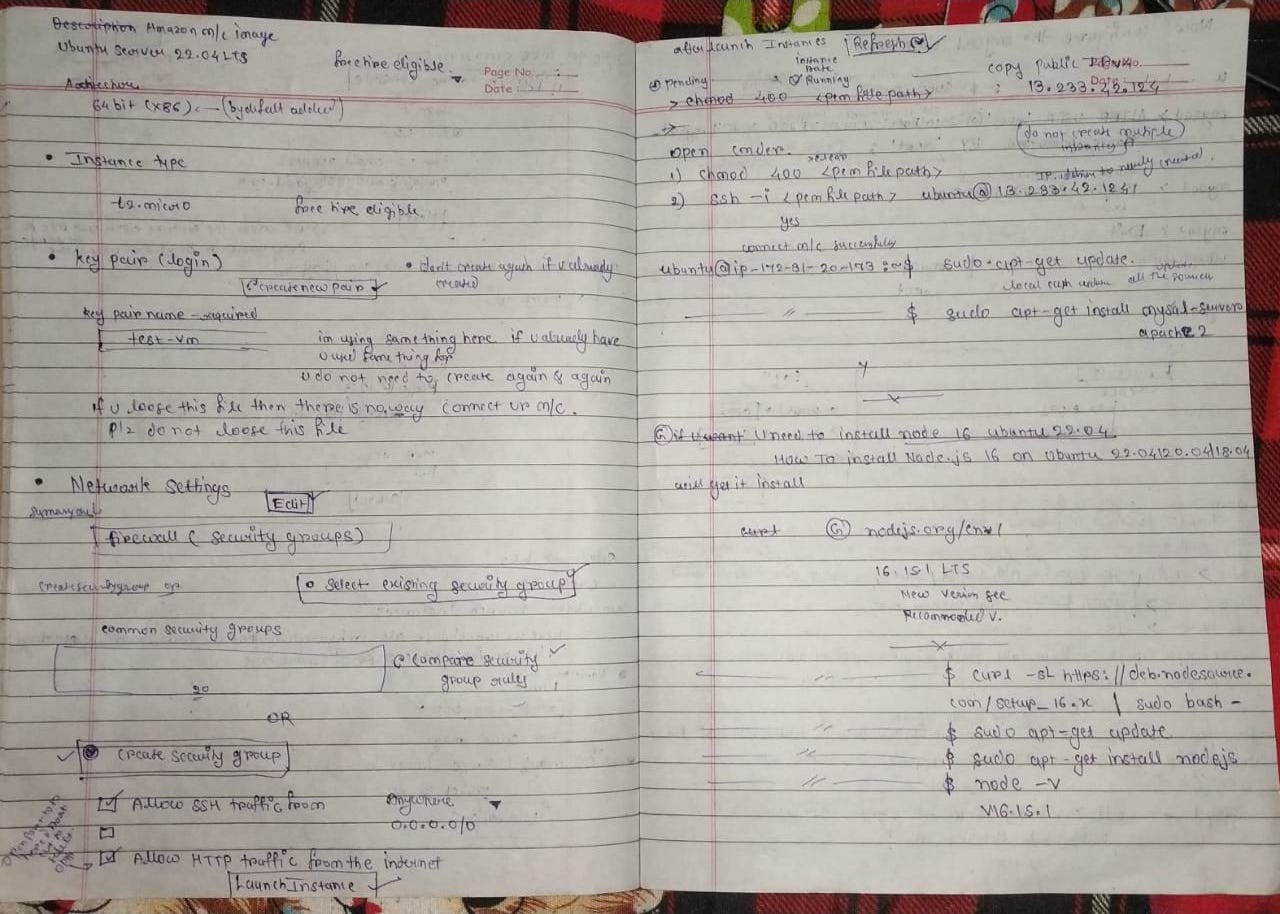 Description Amazon m/c image
Ubuntu Server 22.04 LTS
free tire eligible
Page No. :
Date :
64 bit (x86) ← (by defalt added)
• Instance type
t2.micro free tire eligible
• key pair (login)
• don't create again if u already created
create new pair
key pair name - required
test-vm
im using same thing here if u already have
u use same thing for
u do not need to create again & again
if u loose this file then there is no way connect ur m/c.
plz do not loose this file
• Network settings
Edit
firewall (security groups)
select existing security group
common security groups
compare security
group rules
OR
create security group
Allow SSH traffic from Anywhere
0.0.0.0/0
Allow HTTP traffic from the internet
Launch Instance
after launch Instances Refresh
Instance
State
pending Running
copy public
Date
: 13.233.42.124
> chmod 400 <pem file path>
do not create multiple
open cmder.
1) chmod 400 <pem file path>
2) ssh -i <pem file path> ubuntu@13.233.42.124
yes
connect m/c successfully
ubuntu@ip-172-31-20-173:~$ sudo apt-get update.
$ sudo apt-get install mysql-server
apache2
y
u need to install node 16 ubuntu 22.04
How To install Node.js 16 on Ubuntu 22.04|20.04|18.04
will get it install
nodejs.org/en
16.15.1 LTS
New version see
Recommonded V.
$ curl -sL https://deb.nodesource.
com/setup_16.x | sudo bash -
$ sudo apt-get update
$ sudo apt-get install nodejs
$ node -v
v16.15.1